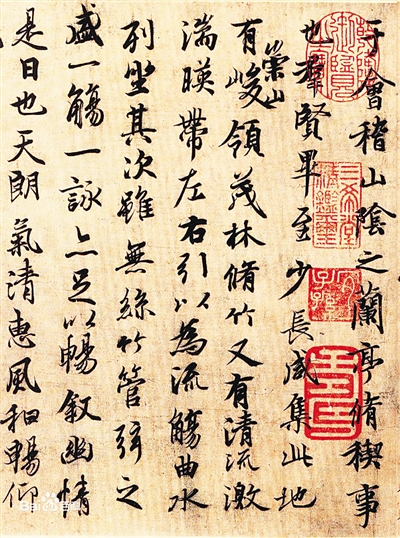 于會稽山陰之蘭亭脩稧事
也羣賢畢至少長咸集此地
有崇山峻領茂林脩竹又有清流激
湍暎帶左右引以為流觴曲水
列坐其次雖無絲竹管弦之
盛一觴一詠亦足以暢敘幽情
是日也天朗氣清惠風和暢仰
三希堂精鑑璽
Bai百科